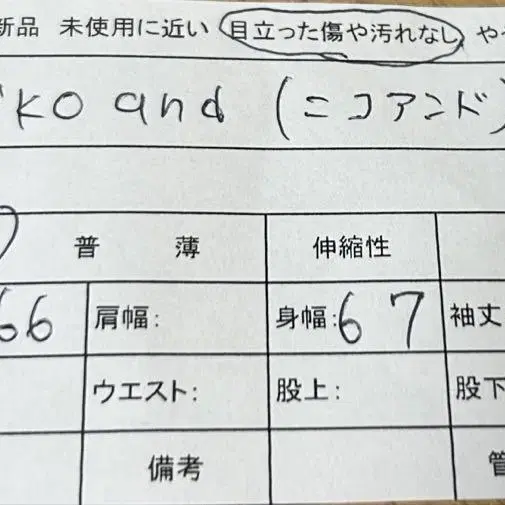 新品 未使用に近い 目立った傷や汚れなし や
ko and (ニコアンド)
普 薄 伸縮性
66 肩幅: 身幅:67 袖丈
ウエスト: 股上: 股下
備考